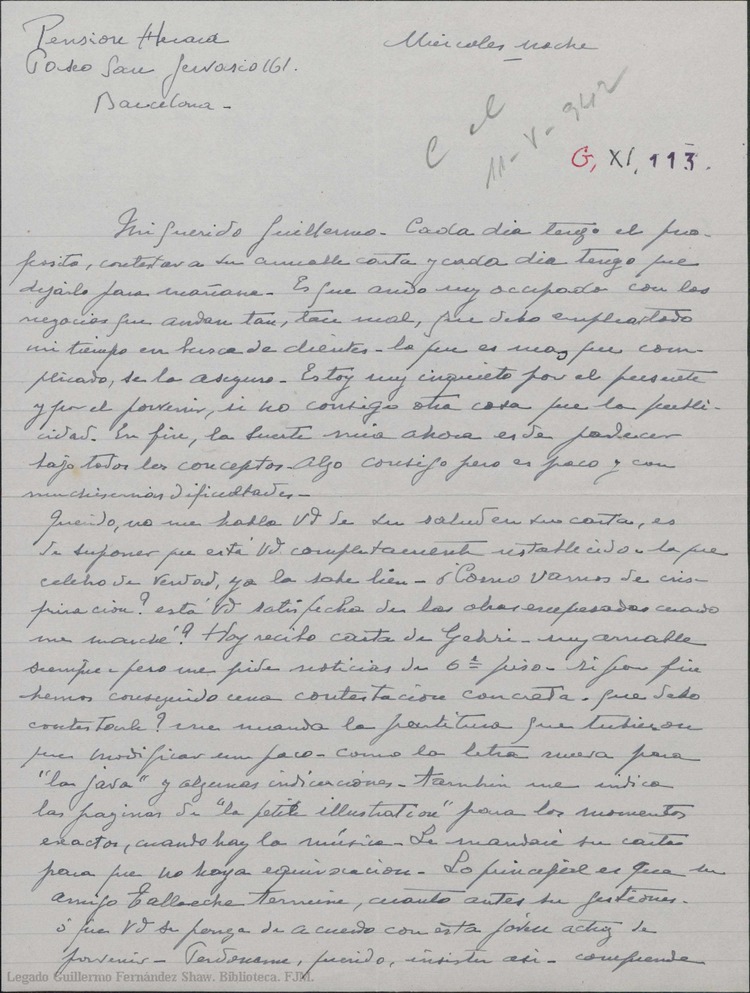 Pension
Paseo San Gervasio 161.
Barcelona -
Miercoles noche
11-V-942
G, XI, 113.
Mi querido Guillermo - Cada dia tengo el pro-
posito, contestar a su amable carta y cada dia tengo que
dejarlo para mañana - Es que ando muy ocupado con los
negocios que andan tan, tan mal, que debo emplear todo
mi tiempo en busca de clientes - lo que es mas que com-
plicado, se lo aseguro - Estoy muy inquieto por el presente
y por el porvenir, si no consigo otra cosa que la publi-
cidad. En fin, la suerte mia ahora es de padecer
bajo todos los conceptos - Algo consigo pero es poco y con
muchisimas dificultades -
Querido, no me habla Vd de su salud en su carta, es
de suponer que está Vd completamente restablecido - lo que
celebro de verdad, ya lo sabe bien - ¿Como vamos de ins-
piracion? está Vd satisfecho de las obras empezadas cuando
me marché? Hoy recibo carta de Gehri - muy amable
siempre - pero me pide noticias de 6º piso - Si por fin
hemos conseguido una contestacion concreta - que debo
contestarle? me manda la partitura que tubieron
que modificar un poco - como la letra nueva para
"la java" y algunas indicaciones - tambien me indica
las paginas de "la petite illustration" para los momentos
exactos, cuando hay la música - Le mandaré su carta
para que no haya equivocacion - Lo principal es que su
amigo termine, cuanto antes su gestiones -
ó que Vd se ponga de acuerdo con esta jóven actriz de
porvenir - Perdoname, querido, insistir asi - comprende
Legado Guillermo Fernández Shaw. Biblioteca. FJM.